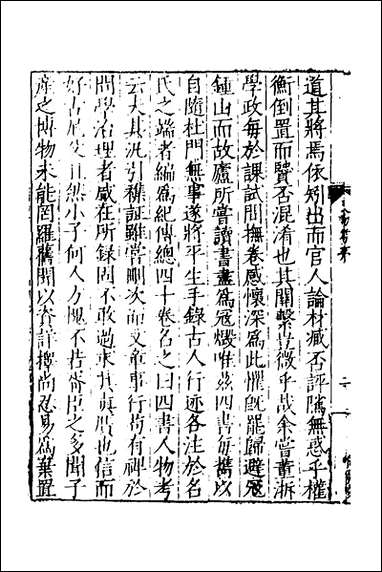 道其將焉依矧出而官人論材臧否評隲無惑乎權
衡倒置而賢否混淆也其關繫豈微乎哉余嘗董浙
學政毎於課試間撫卷感懷深為此懼旣罷歸避冦
鍾山而故廬所嘗讀書盡爲冦燬唯茲四書毎攜以
自隨杜門無事遂將平生手錄古人行迹各注於名
氏之端者編爲紀傳總四十卷名之曰四書人物考
云夫其況引穕証雖嘗刪次而文章事行苟有裨於
問學治理者咸在所錄固不敢過求其真贋也信而
好古尼父且然小子何人方愧不若胥臣之多聞子
產之博物未能罔羅舊聞以資詳擇尚忍易爲棄置
二